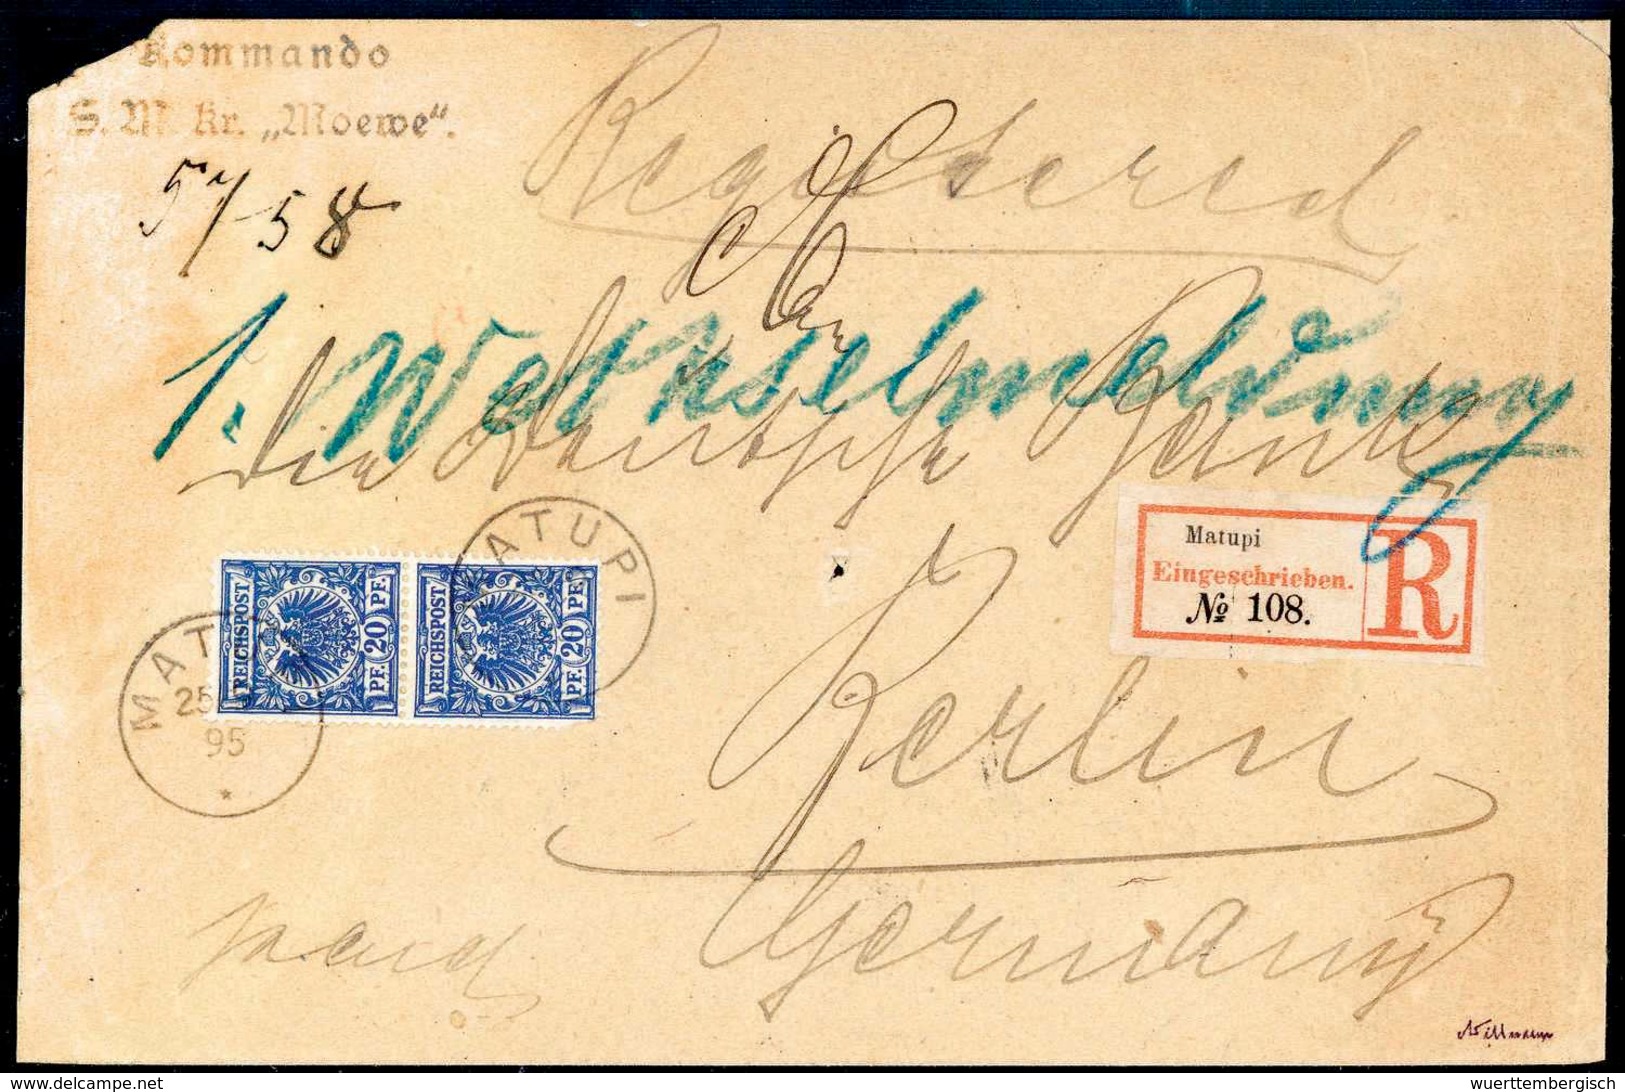 Kommando
S. M. Kr. „Moewe“.
57/58
Registered
1. Wechselmeldung
An
Die Deutsche Bank
Berlin
Germany
MATUPI
25
95
*
MATUPI
REICHSPOST
PF. 20 PF.
REICHSPOST
PF. 20 PF.
Matupi
Eingeschrieben.
№ 108.
R
delcampe.net
wuerttembergisch